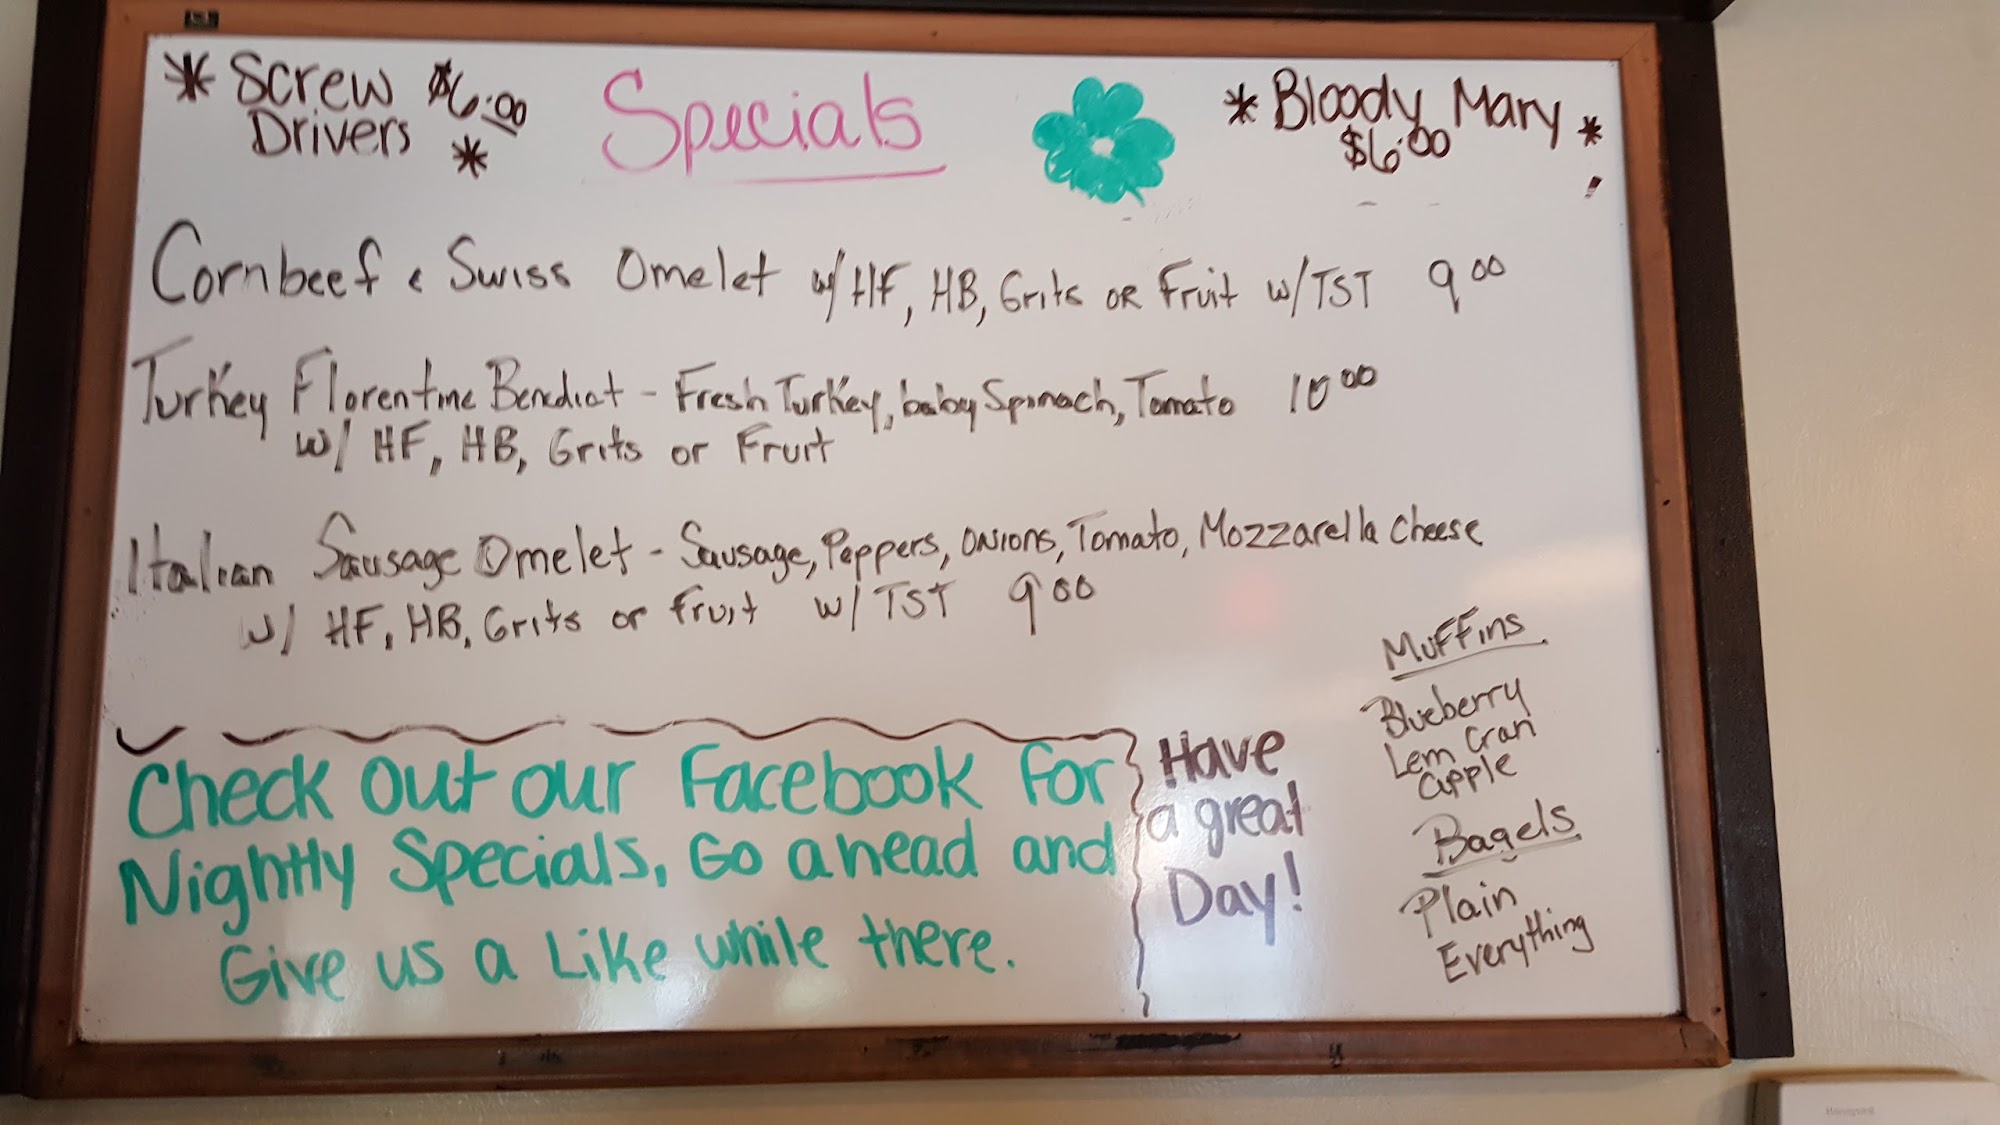 * Screw $6.00
Drivers *
Specials
* Bloody Mary *
$6.00
Cornbeef & Swiss Omelet w/ HF, HB, Grits or Fruit w/TST 9 00
Turkey Florentine Benedict - Fresh Turkey, baby Spinach, Tomato 10 00
w/ HF, HB, Grits or Fruit
Italian Sausage Omelet - Sausage, Peppers, Onions, Tomato, Mozzarella Cheese
w/ HF, HB, Grits or Fruit w/ TST 9 00
Check out our Facebook for
Nightly Specials, Go ahead and
Give us a Like while there.
Have
a great
Day!
Muffins
Blueberry
Lem Cran
apple
Bagels
Plain
Everything
Honeywell